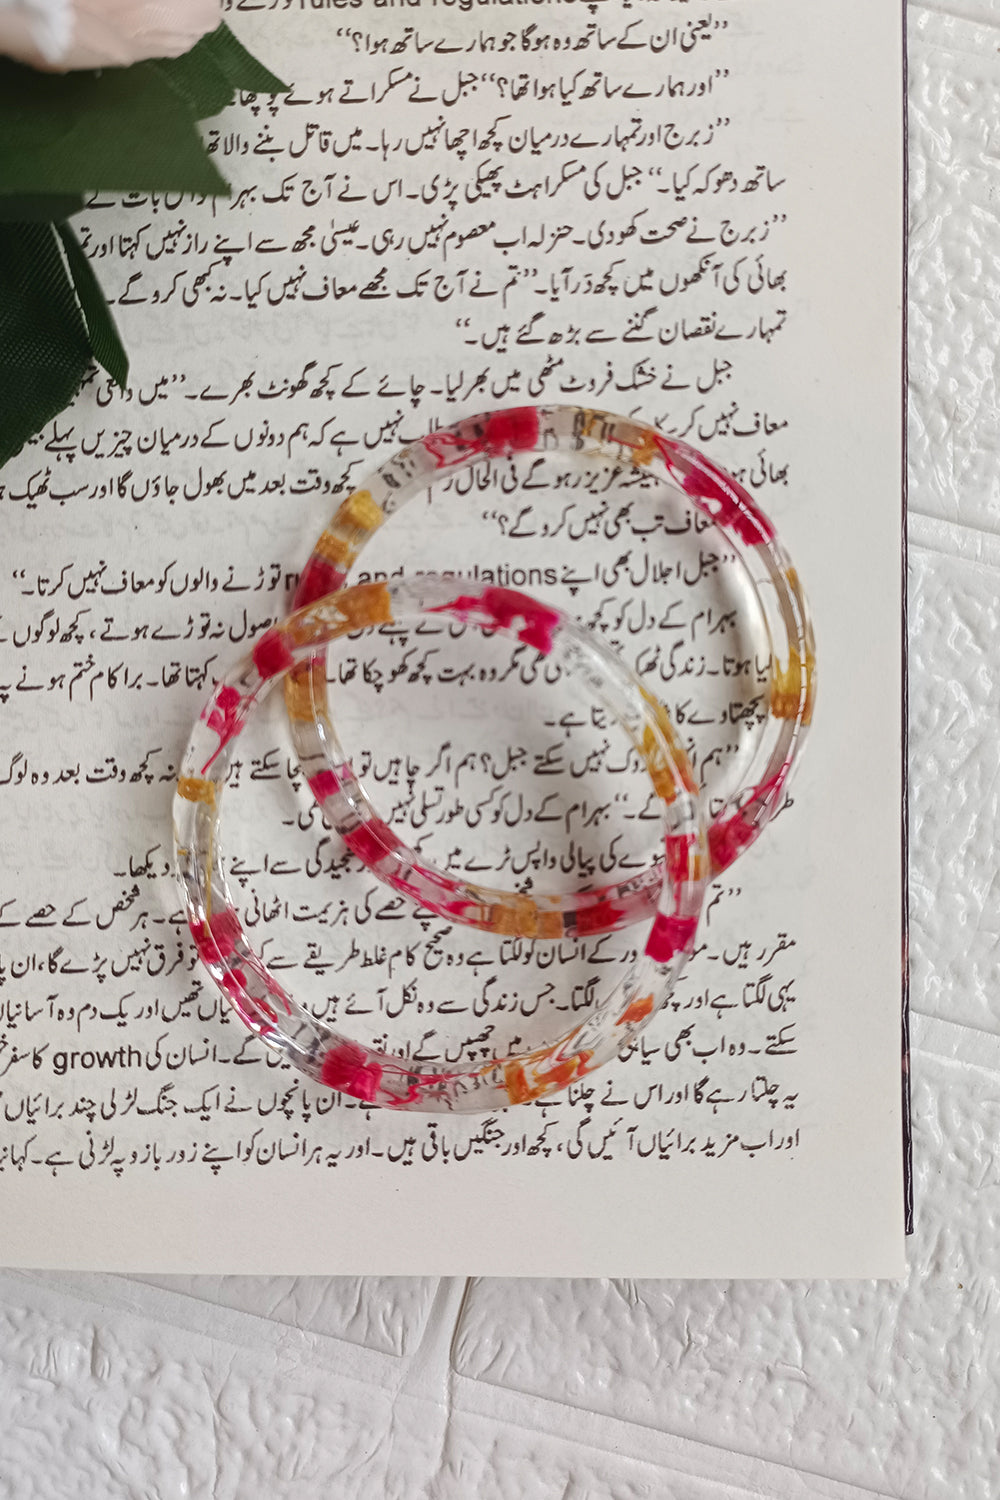 rules and regulations
’’یعنی ان کے ساتھ وہ ہوگا جو ہمارے ساتھ ہوا؟‘‘
’’اور ہمارے ساتھ کیا ہوا تھا؟‘‘ جبل نے مسکراتے ہوئے پوچھا۔
’’زبرج اور تمہارے درمیان کچھ اچھا نہیں رہا۔ میں قاتل بننے والا تھا
ساتھ دھوکہ کیا۔‘‘ جبل کی مسکراہٹ پھیکی پڑی۔ اس نے آج تک بہرام والی بات کے
’’زبرج نے صحت کھودی۔ حنزلہ اب معصوم نہیں رہی۔ عیسیٰ مجھ سے اپنے راز نہیں کہتا اور تم
بھائی کی آنکھوں میں کچھ در آیا۔ ’’تم نے آج تک مجھے معاف نہیں کیا۔ نہ کبھی کرو گے۔
تمہارے نقصان گننے سے بڑھ گئے ہیں۔‘‘
جبل نے خشک فروٹ مٹھی میں بھر لیا۔ چائے کے کچھ گھونٹ بھرے۔ ’’میں واقعی تمہ
معاف نہیں کر نہیں ہے کہ ہم دونوں کے درمیان چیزیں پہلے
بھائی عزیز رہو گے فی الحال کچھ وقت بعد میں بھول جاؤں گا اور سب ٹھیک
معاف تب بھی نہیں کرو گے؟‘‘
’’جبل اجلال بھی اپنے rules and regulations توڑنے والوں کو معاف نہیں کرتا۔‘‘
بہرام کے دل کو کچھ اصول نہ توڑے ہوتے، کچھ لوگوں
لیا ہوتا۔ زندگی ٹھیک تھی مگر وہ بہت کچھ کھو چکا تھا۔ کہتا تھا۔ برا کام ختم ہونے پہ
پچھتاوے کا دیتا ہے۔
’’ہم روک نہیں سکتے جبل؟ ہم اگر چاہیں تو بچا سکتے ہیں نہ کچھ وقت بعد وہ لوگ
گے۔‘‘ بہرام کے دل کو کسی طور تسلی نہیں تھی۔
قہوے کی پیالی واپس ٹرے میں سنجیدگی سے اپنے دیکھا۔
’’تم حصے کی ہزیمت اٹھانی ہے۔ ہر شخص کے حصے کے
مقرر ہیں۔ کے انسان کو لگتا ہے وہ صحیح کام غلط طریقے سے تو فرق نہیں پڑے گا، ان
یہی لگتا ہے اور لگتا۔ جس زندگی سے وہ نکل آئے ہیں تھیں اور یک دم وہ آسانیاں
سکتے۔ وہ اب بھی میں چھپیں گے اور گے۔ انسان کی growth کا سفر
یہ چلتا رہے گا اور اس نے چلنا ہے۔ ان پانچوں نے ایک جنگ لڑلی چند برائیاں
اور اب مزید برائیاں آئیں گی، کچھ اور جنگیں باقی ہیں۔ اور یہ ہر انسان کو اپنے زور بازو پہ لڑنی ہے۔